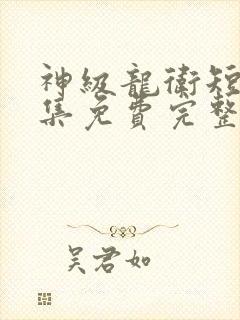 神級龍衛短
集免費完整
吴君如